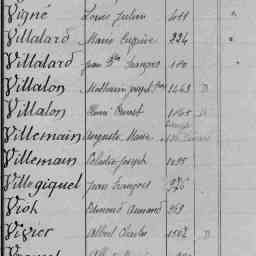 Vigné Louis Julien 411
Villalard Marie Eugène 224
Villalard Jean Bte François 180
Villalon Mathurin Joseph Marie 1463 D
Villalon Henri Ernest 1165
Villemain Auguste Marie
Villemain Célestin Joseph 1095
Villegiquel Jean François 976
Viot Edmond Armand 963
Vizier Albert Charles 1562 D